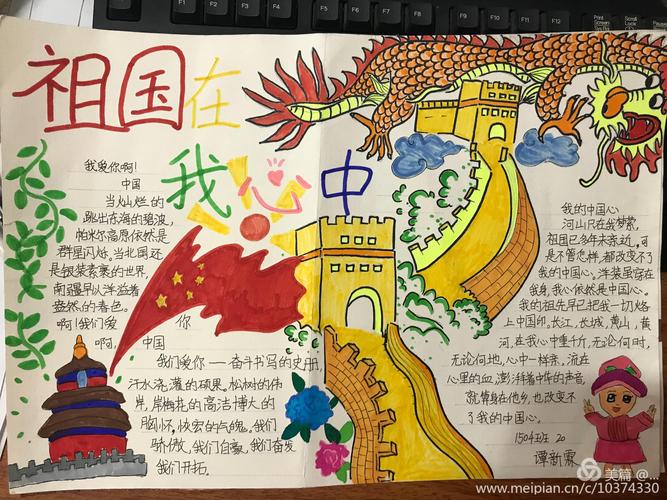 祖国在
我心中
我爱你啊!
中国
当灿烂的
跳出东海的碧波,
帕米尔高原依然是
群星闪烁,当北国还
是银装素裹的世界,
南疆早从洋溢着
盎然的春色。
啊!我们爱你
啊,中国
我们爱你——奋斗书写的史册,
汗水浇灌的硕果,松树的伟
岸,岸梅花的高洁博大的
胸怀,恢宏的气魄,我们
骄傲,我们自豪,我们奋发
我们开拓。
我的中国心
河山只在我梦萦,
祖国已多年未亲近,可
是不管怎样,都改变不了
我的中国心。洋装虽穿在
我身,我心依然是中国心。
我的祖先早已把我一切烙
上中国印,长江,长城,黄山,黄
河,在我心中重千斤,无论何时,
无论何地,心中一样亲,流在
心里的血,澎湃着中华的声音,
就算身在他乡,也改变不
了我的中国心。
1504班 20
谭新霖
Print
Screen
SysRq
Scroll
Lock
Pause
Break
美篇 @...
www.meipian.cn/c/10374330